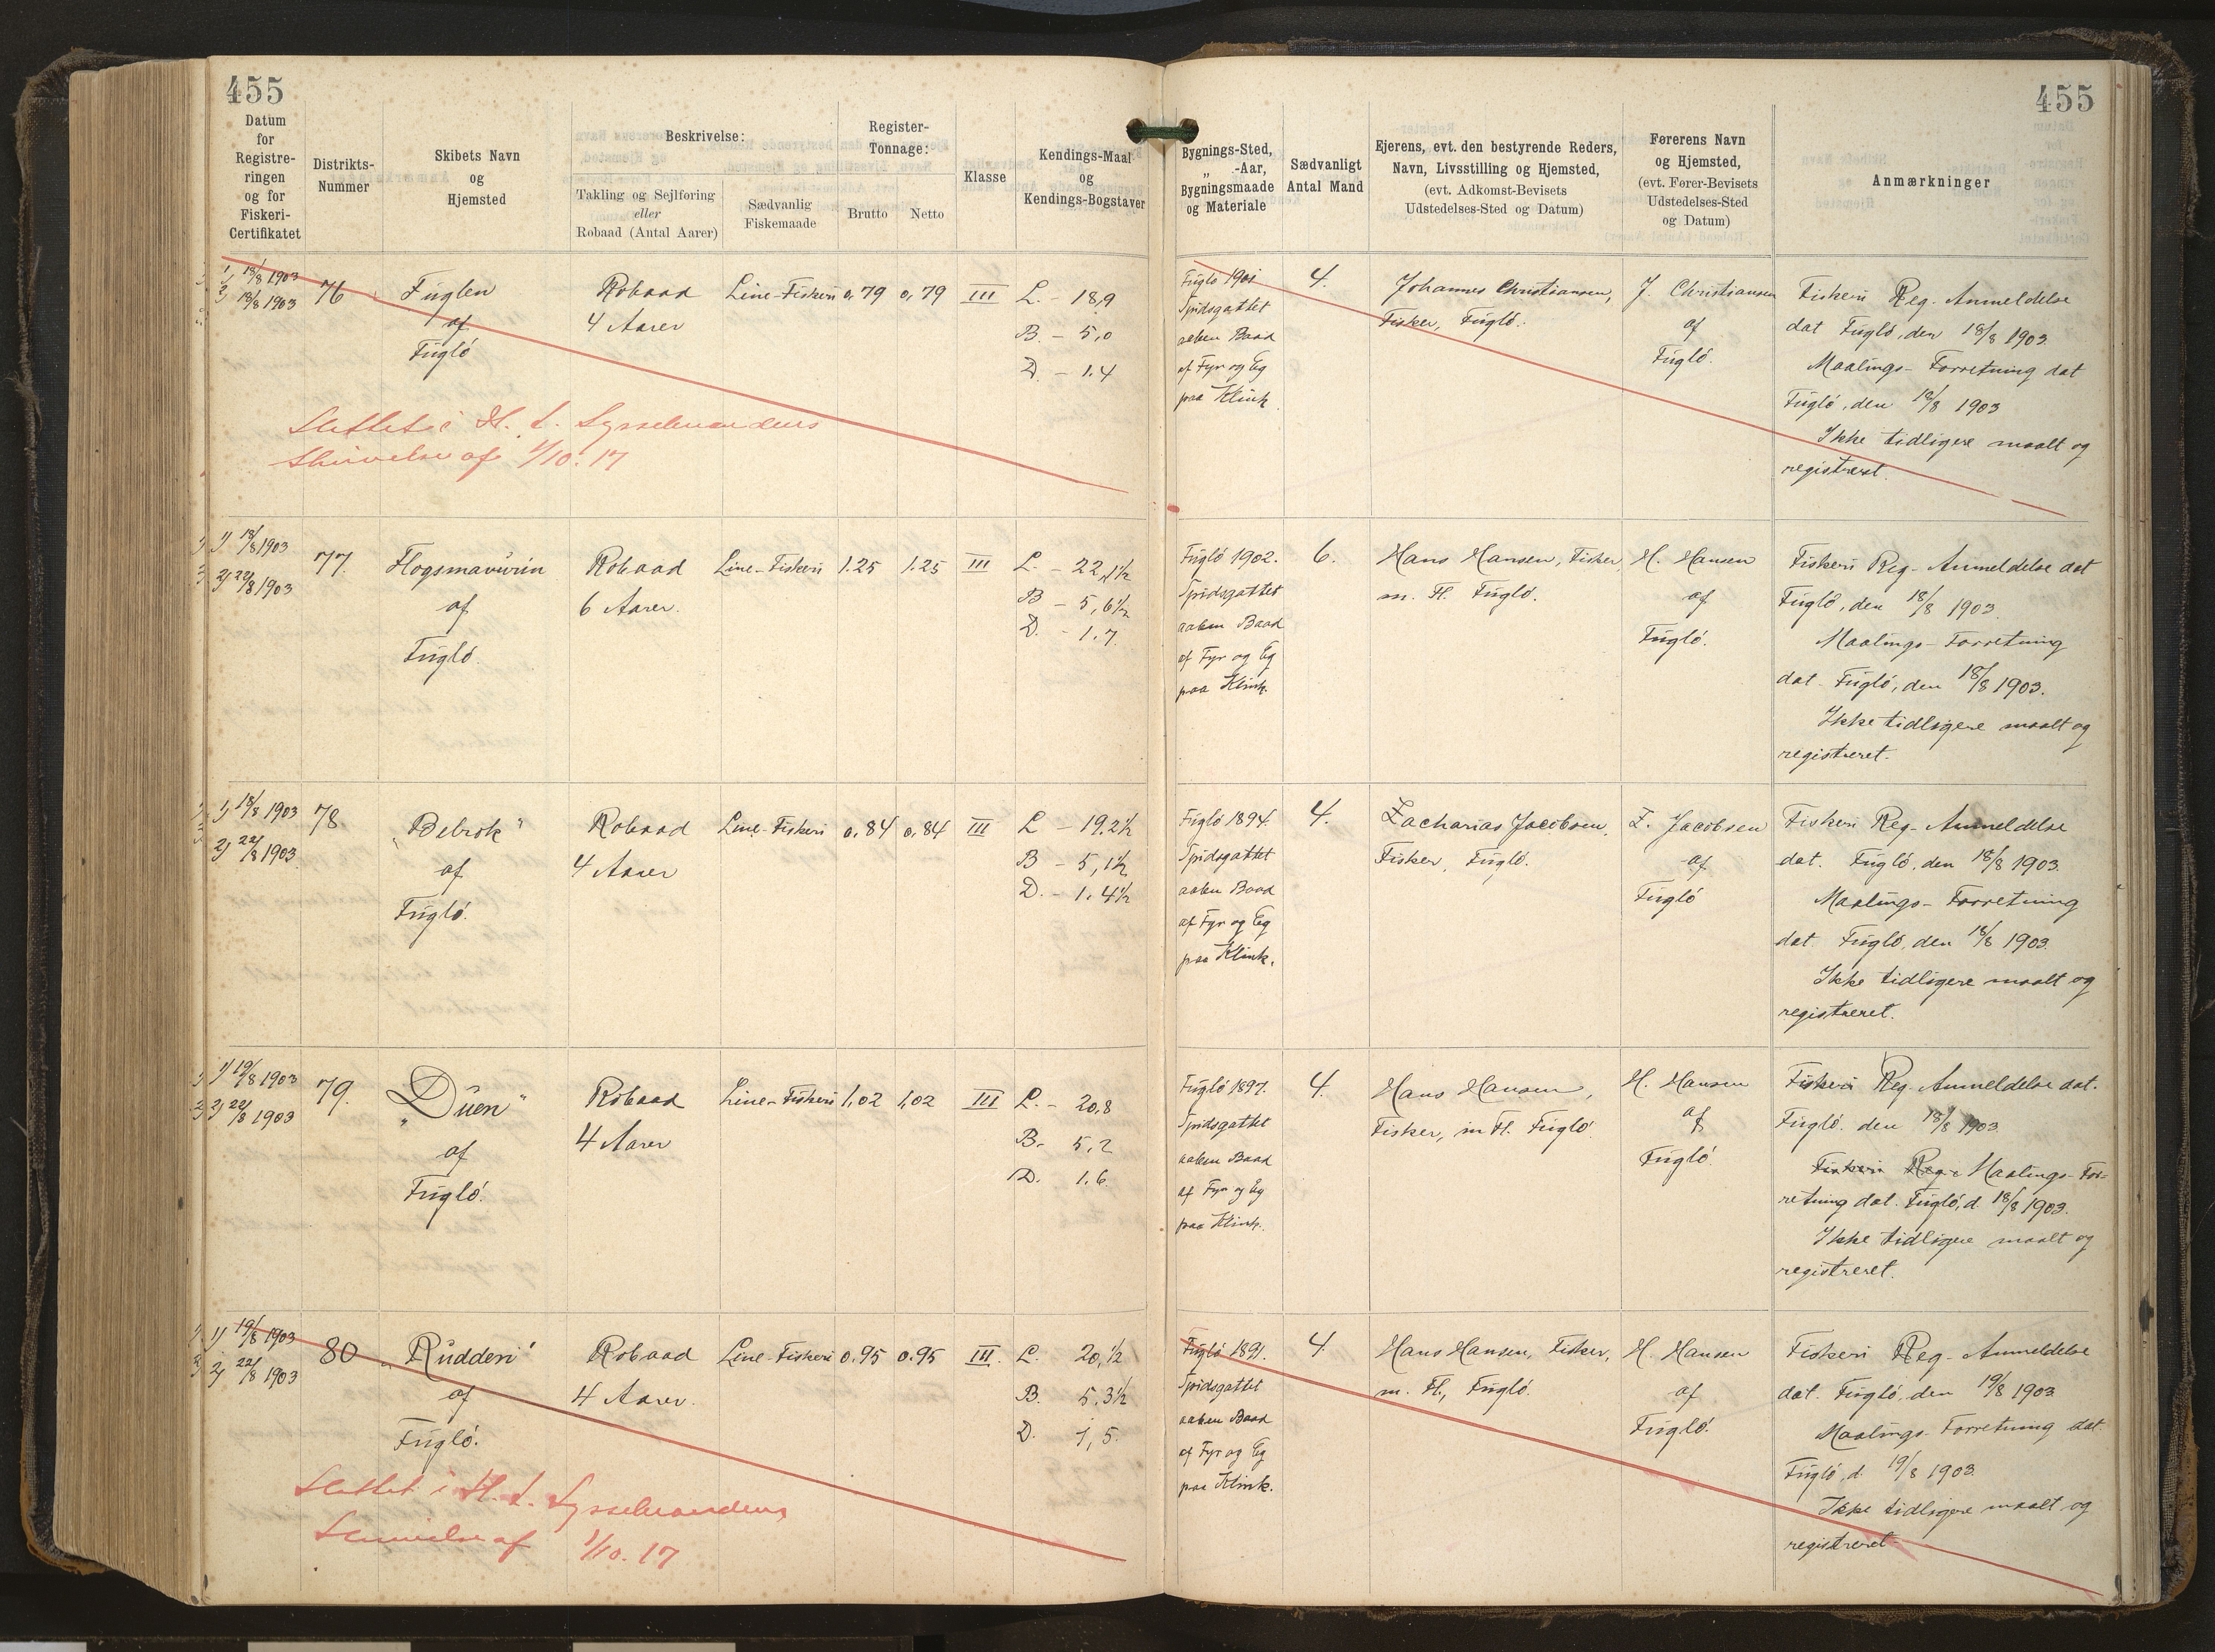 455
455
Datum
for
Registre-
ringen
og for
Fiskeri-
Certifikatet
Distrikts-
Nummer
Skibets Navn
og
Hjemsted
Beskrivelse:
Takling og Sejlføring
eller
Robaad (Antal Aarer)
Sædvanlig
Fiskemaade
Register-
Tonnage:
Brutto
Netto
Klasse
Kendings-Maal
og
Kendings-Bogstaver
Bygnings-Sted,
„ -Aar,
Bygningsmaade
og Materiale
Sædvanligt
Antal Mand
Ejerens, evt. den bestyrende Reders,
Navn, Livsstilling og Hjemsted,
(evt. Adkomst-Bevisets
Udstedelses-Sted og Datum)
Førerens Navn
og Hjemsted,
(evt. Fører-Bevisets
Udstedelses-Sted
og Datum)
Anmærkninger
1) 18/8 1903
2) 18/8 1903
76
Fuglen
af
Fugló
Robaad
4 Aarer
Line-Fiskeri
0,79
0,79
III
L. - 18,9
B. - 5,0
D. - 1.4
Fugló 1901
Spidsgattet
aaben Baad
af Fyr og Eg
paa Klink
4.
Johannes Christiansen,
Fisker, Fugló.
J. Christiansen
af
Fugló.
Fiskeri Reg. Anmeldelse
dat Fugló, den 18/8 1903.
Maalings-Forretning dat
Fugló, den 18/8 1903
Ikke tidligere maalt og
registreret.
Slettet i H. t. Sysselmandens
Skrivelse af 1/10. 17
1) 18/8 1903
2) 22/8 1903
77.
Flogsmavurin
af
Fugló.
Robaad
6 Aarer.
Line-Fiskeri
1.25
1.25
III
L. - 22,1½
B - 5,6½
D. - 1.7.
Fugló 1902.
Spidsgattet
aaben Baad
af Fyr og Eg
paa Klink.
6.
Hans Hansen, Fisker,
m. Fl. Fugló.
H. Hansen
af
Fugló.
Fiskeri Reg- Anmeldelse dat
Fugló, den 18/8 1903.
Maalings-Forretning
dat. Fugló, den 18/8 1903.
Ikke tidligere maalt og
registreret.
1) 18/8 1903
2) 22/8 1903.
78
„Bebrok"
af
Fugló.
Robaad
4 Aarer
Line-Fiskeri
0.84
0.84
III
L - 19.2½
B - 5,1½
D. - 1.4½
Fugló 1894.
Spidsgattet
aaben Baad
af Fyr og Eg
paa Klink.
4.
Zacharias Jacobsen,
Fisker, Fugló.
Z. Jacobsen
af
Fugló
Fiskeri Reg- Anmeldelse
dat. Fugló, den 18/8 1903.
Maalings-Forretning
dat. Fugló, den 18/8 1903.
Ikke tidligere maalt og
registreret.
1) 19/8 1903
2) 22/8 1903
79.
„Duen"
af
Fugló.
Robaad
4 Aarer
Line-Fiskeri
1,02
1,02
III
L. - 20,8
B. 5,2
D. 1.6
Fugló 1897.
Spidsgattet
aaben Baad
af Fyr og Eg
paa Klink.
4.
Hans Hansen,
Fisker, m Fl. Fugló.
H. Hansen
af
Fugló.
Fiskeri Reg. Anmeldelse dat.
Fugló. den 18/8 1903.
Fiskeri Reg- Maalings-For-
retning dat. Fugló, d. 18/8 1903.
Ikke tidligere maalt og
registreret.
1) 19/8 1903
2) 22/8 1903
80
„Rudden"
af
Fugló.
Robaad
4 Aarer.
Line-Fiskeri
0.95
0.95
III.
L. 20,½
B. 5,3½
D. 1,5.
Fugló 1891.
Spidsgattet
aaben Baad
af Fyr og Eg
paa Klink.
4.
Hans Hansen, Fisker,
m. Fl., Fugló.
H. Hansen
af
Fugló.
Fiskeri Reg- Anmeldelse
dat. Fugló, den 19/8 1903.
Maalings-Forretning dat.
Fugló, d. 19/8 1903.
Ikke tidligere maalt og
registreret
Slettet i H. t. Sysselmandens
Skrivelse af 1/10. 17